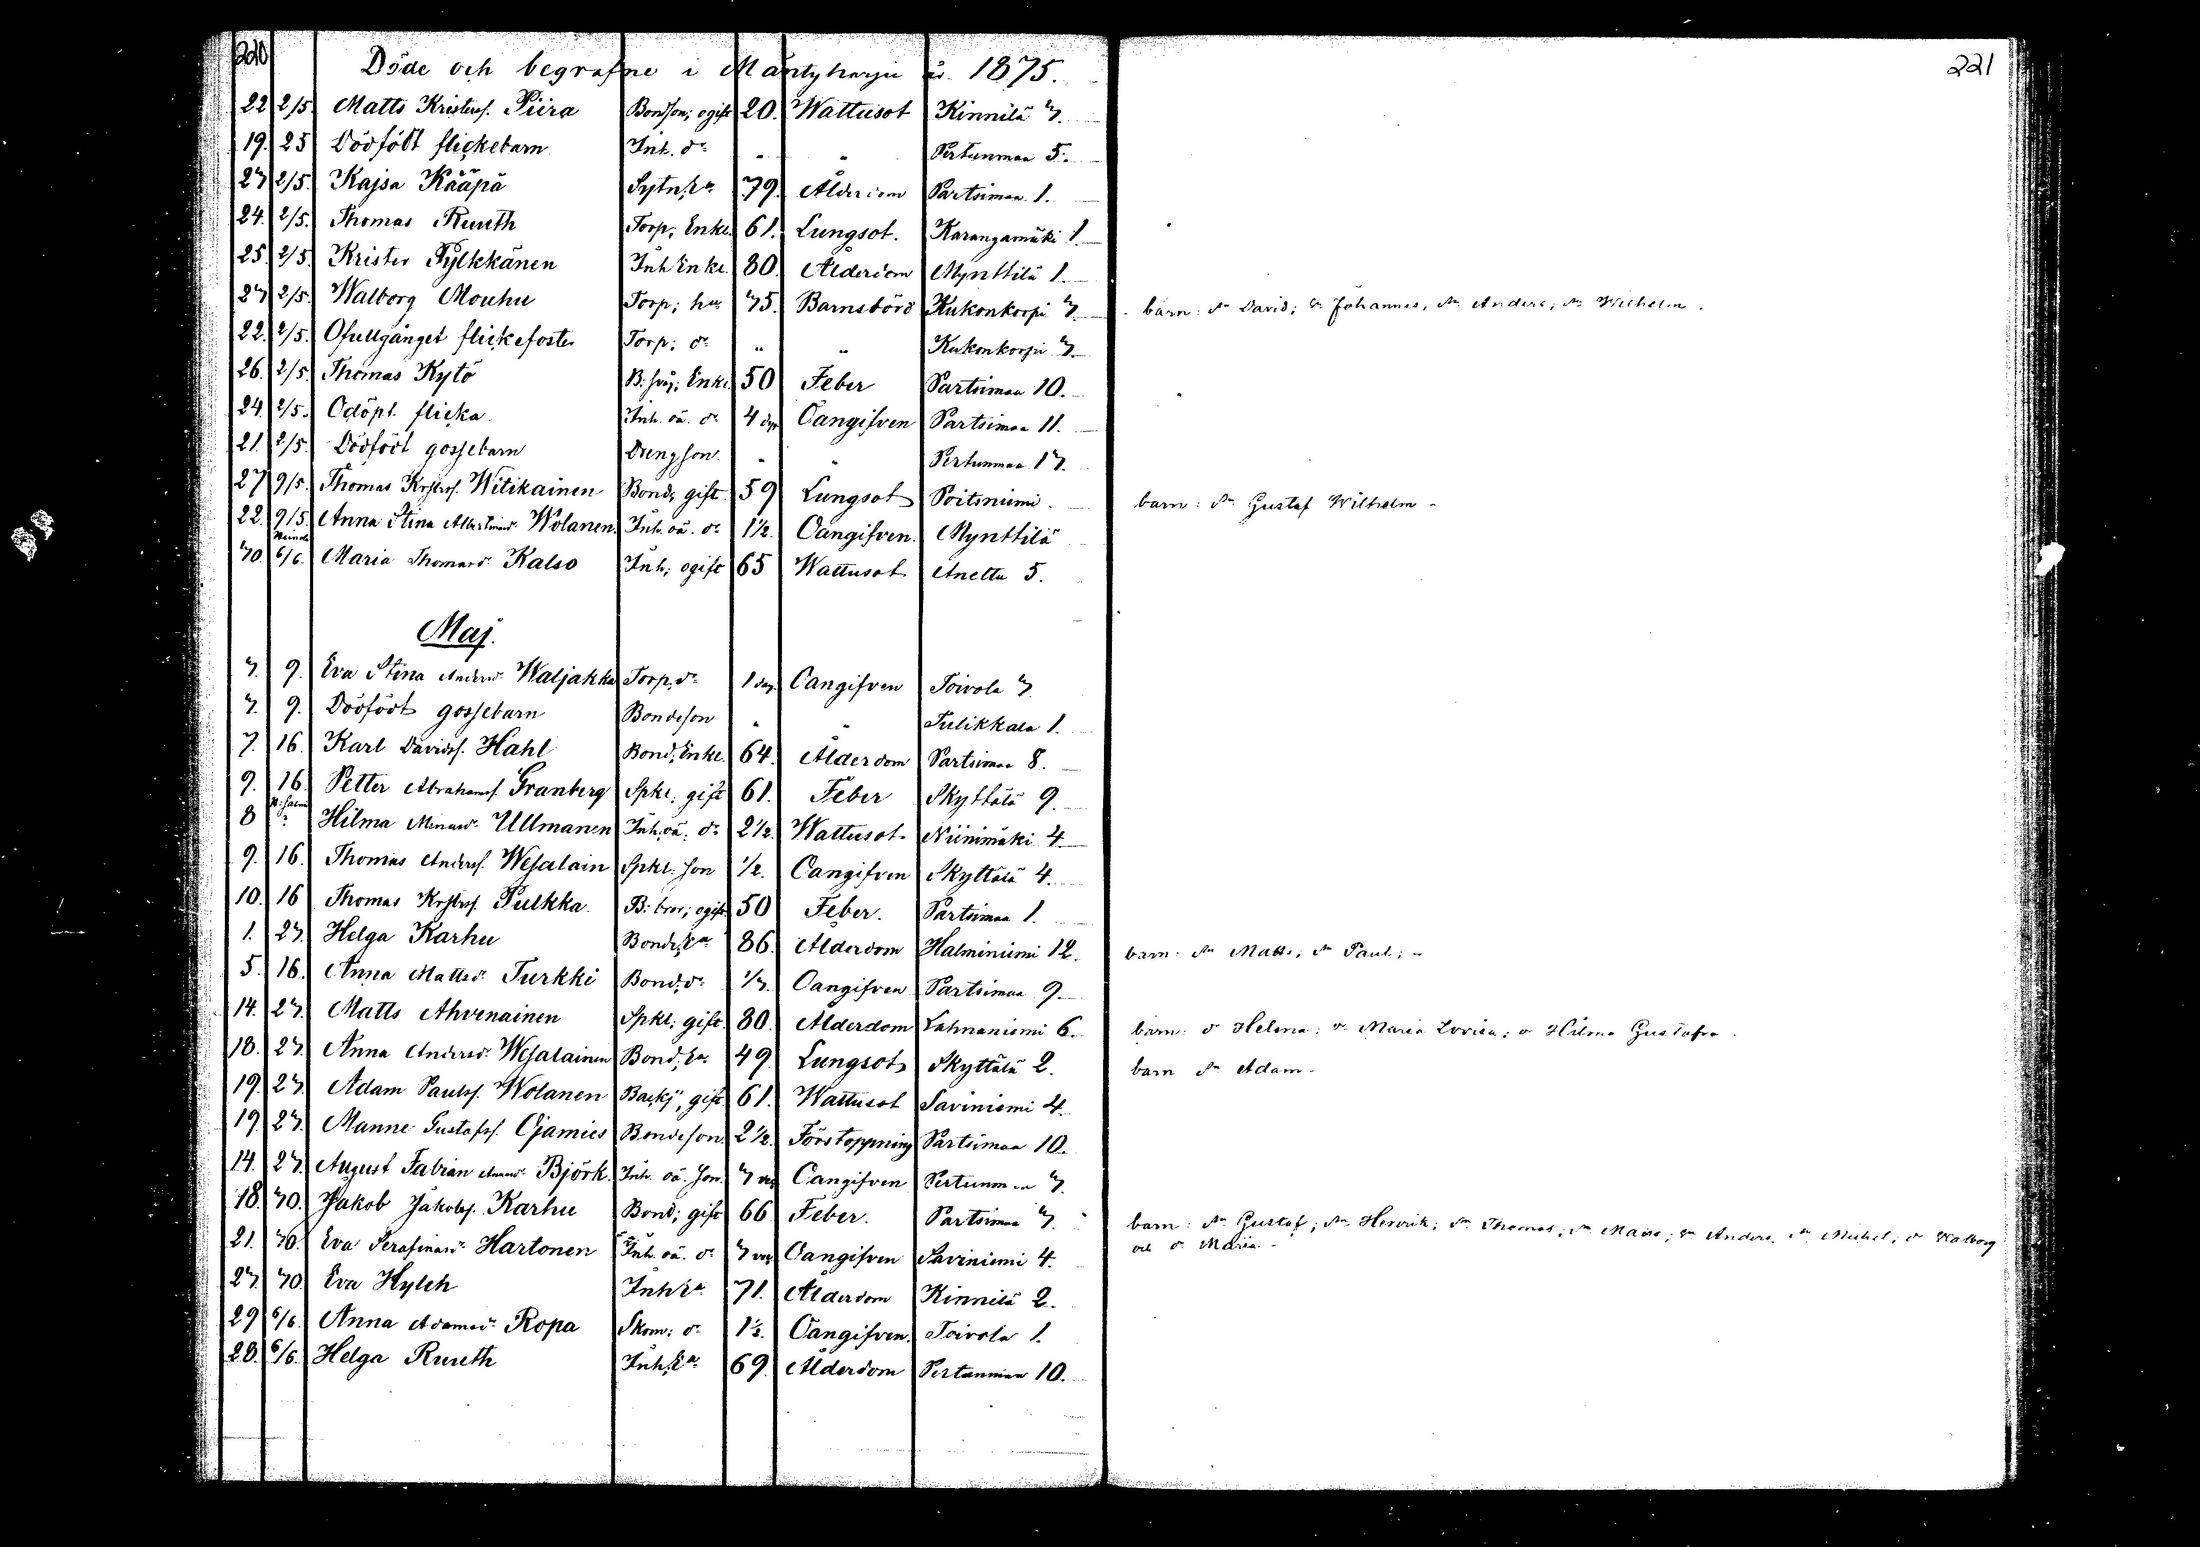 220
221
Döde och begrafne i Mäntyharju år 1875.
22 2/5 Matts Kristers. Piira Bondson; ogift 20. Wattusot Kinnilä 3.
19. 25 Dödfödt flickebarn Inh. dr " " Pertunmaa 5.
23 2/5. Kajsa Kääpä Sytn. Ea 79. Ålderdom Partsimaa 1.
24. 2/5. Thomas Ruuth Torp; Enkl. 61. Lungsot. Karangamäki 1.
25. 2/5. Krister Pylkkänen Inh Enkl. 80. Ålderdom Mynttilä 1.
23 2/5. Walborg Mouhu Torp; hu 35. Barnsbörd Kukonkorpi 3. barn: sn David; sn Johannes, sn Anders, sn Wilhelm.
22. 2/5. Ofullgånget flickefoster Torp; dr " " Kukonkorpi 3.
26. 2/5. Thomas Kytö B: svåg; Enkl. 50 Feber Partsimaa 10.
24. 2/5. Odöpt flicka. Inh. oä. dr 4 dgr Oangifven Partsimaa 11.
21. 2/5. Dödfödt gossebarn Drengson. " " Pertunmaa 13.
27 9/5. Thomas Krsters. Witikainen Bond; gift. 59 Lungsot Poitsniemi. barn: sn Gustaf Wilhelm -
22. 9/5. Anna Stina Albertinad. Wolanen. Inh. oä. dr 1 1/2. Oangifven. Mynttilä
30. 6/6. Maria Thomasdr Kalso Inh; ogift 65 Wattusot Anettu 5.
Maj.
3. 9. Eva Stina Andersdr Waljakka Torp. dr 1 dag. Oangifven Toivola 3.
3. 9. Dödfödt gossebarn Bondeson " " Tulikkala 1.
7. 16. Karl Davidss. Hahl Bond; Enkl. 64. Ålderdom Partsimaa 8.
9. 16. Petter Abrahams. Granberg Spkl. gift 61. Feber Skyttälä 9.
8 Hilma Minasdr Ullmanen Inh. oä. dr 2 1/2. Wattusot. Niinimäki 4.
9. 16. Thomas Anders. Wesalain Spkl. son 1/2. Oangifven Skyttälä 4.
10. 16 Thomas Krsters. Pulkka. B: bror; ogift 50 Feber. Partsimaa 1.
1. 23. Helga Karhu Bonde; Ea 86. Ålderdom Halminiemi 12. barn: sn Matts; sn Paul; -
5. 16. Anna Mattsdr Turkki Bond. dr 1/3. Oangifven Partsimaa 9.
14. 23. Matts Ahvenainen Spkl; gift. 80. Ålderdom Lahnaniemi 6. barn: dr Helena; dr Maria Lovisa; dr Hilma Gustafva.
18. 23. Anna Andersdr Wesalainen Bond; Ea 49. Lungsot Skyttälä 2. barn sn Adam -
19. 23. Adam Paulss. Wolanen Backj; gift. 61. Wattusot Saviniemi 4.
19. 23. Manne Gustafss. Ojamies Bondeson. 2 1/2. Förstoppning Partsimaa 10.
14. 23. August Fabian Annasdr Björk. Inh. oä. son. 3 vec Oangifven Pertunmaa 3.
18. 30. Jakob Jakobs. Karhu Bond; gift 66 Feber. Partsimaa 3. barn: sn Gustaf; sn Henrik; sn Thomas; sn Matts; sn Anders. sn Michel; dr Walborg
och dr Maria -
21. 30. Eva Serafinasdr Hartonen Inh. oä. dr 3 vec Oangifven Saviniemi 4.
23 30. Eva Hyleh Inh Ea 71. Ålderdom Kinnilä 2.
29 6/6. Anna Adamsdr Ropa Skom: dr 1 1/2. Oangifven. Toivola 1.
28. 6/6. Helga Ruuth Inh; Ea 69. Ålderdom Pertunmaa 10.